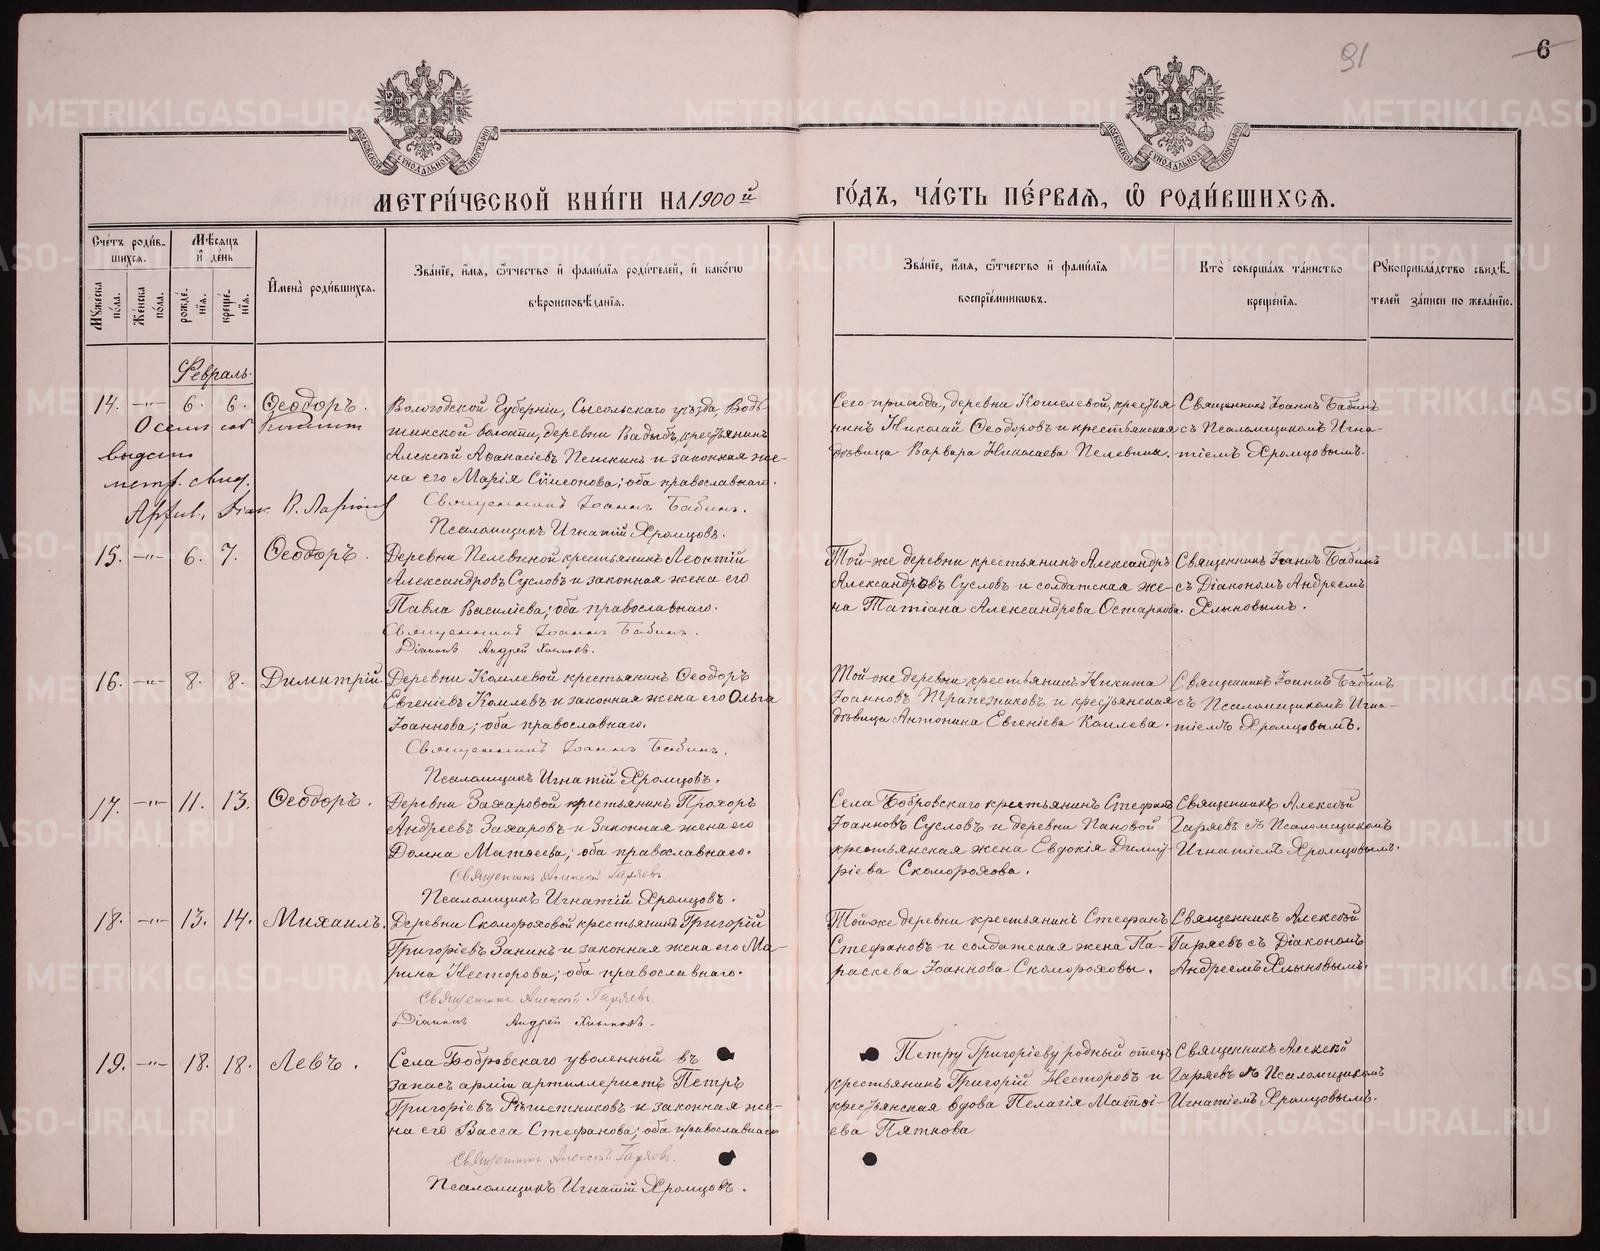 91
6
МОСКОВСКОЙ СѴНОДАЛЬНОЙ ТИПОГРАФІИ
МОСКОВСКОЙ СѴНОДАЛЬНОЙ ТИПОГРАФІИ
МЕТРИ́ЧЕСКОЙ КНИ́ГИ НА 1900й ГО́ДЪ, ЧА́СТЬ ПЕ́РВАЯ, Ѡ РОДИ́ВШИХСЯ.
Сче́тъ роди́в-
шихся.
Мѣ́сяцъ
и де́нь
Мꙋжеска по́ла.
Же́нска по́ла.
рожде́-
нія.
креще́-
нія.
Имена̀ роди́вшихся.
Зва́ніе, и́мя, ѻ́тчество и фами́лія роди́телей, и како́гѡ
вѣроисповѣ́данія.
Зва́ніе, и́мя, ѻ́тчество и фами́лія
воспріе́мникѡвъ.
Кто̀ соверша́лъ та́инство
креще́нія.
Рꙋкоприкла́дство свидѣ́-
телей за́писи по жела́нію.
Февраль
14. —"— 6. 6. Ѳеодоръ.
выдат
метр. свид.
Вологодской Губерніи, Сысольскаго уѣзда, Вод-
чинской волости, деревни Вадыбъ, крестьянинъ
Алексѣй Аѳанасіевъ Пешкинъ и законная же-
на его Марія Сѵмеонова; оба православнаго.
Священникъ Іоаннъ Бабинъ.
Псаломщикъ Игнатій Хромцовъ.
Сего прихода, деревни Кошелевой, крестья-
нинъ Николай Ѳеодоровъ и крестьянская
дѣвица Варвара Николаева Пелевина.
Священникъ Іоаннъ Бабинъ
съ Псаломщикомъ Игна-
тіемъ Хромцовымъ.
15. —"— 6. 7. Ѳеодоръ.
Деревни Пелевиной крестьянинъ Леонтій
Александровъ Сусловъ и законная жена его
Павла Василіева; оба православнаго.
Священникъ Іоаннъ Бабинъ.
Діаконъ Андрей Хлыновъ.
Той-же деревни крестьянинъ Александръ
Александровъ Сусловъ и солдатская же-
на Татіана Александрова Остаркова.
Священникъ Іоаннъ Бабинъ
съ Діакономъ Андреемъ
Хлыновымъ.
16. —"— 8. 8. Димитрій.
Деревни Комлевой крестьянинъ Ѳеодоръ
Евгеніевъ Комлевъ и законная жена его Ольга
Іоаннова; оба православнаго.
Священникъ Іоаннъ Бабинъ.
Псаломщикъ Игнатій Хромцовъ.
Той-же деревни крестьянинъ Никита
Іоанновъ Трапезниковъ и крестьянская
дѣвица Антонина Евгеніева Комлева.
Священникъ Іоаннъ Бабинъ
съ Псаломщикомъ Игна-
тіемъ Хромцовымъ.
17. —"— 11. 13. Ѳеодоръ.
Деревни Захаровой крестьянинъ Прохоръ
Андреевъ Захаровъ и Законная жена его
Домна Матѳеева; оба православнаго.
Священникъ Алексѣй Гаряевъ.
Псаломщикъ Игнатій Хромцовъ.
Села Бобровскаго крестьянинъ Стефанъ
Іоанновъ Сусловъ и деревни Пановой
крестьянская жена Евдокія Димит-
ріева Скоморохова.
Священникъ Алексѣй
Гаряевъ съ Псаломщикомъ
Игнатіемъ Хромцовымъ.
18. —"— 13. 14. Михаилъ.
Деревни Скомороховой крестьянинъ Григорій
Григоріевъ Занинъ и законная жена его Ма-
рина Несторова; оба православнаго.
Священникъ Алексѣй Гаряевъ.
Діаконъ Андрей Хлыновъ.
Той-же деревни крестьянинъ Стефанъ
Стефановъ и солдатская жена Па-
раскева Іоаннова Скомороховы.
Священникъ Алексѣй
Гаряевъ съ Діакономъ
Андреемъ Хлыновымъ.
19. —"— 18. 18. Левъ.
Села Бобровскаго уволенный въ
запасъ арміи артиллеристъ Петръ
Григоріевъ Рѣшетниковъ и законная же-
на его Васса Стефанова; оба православнаго
Священникъ Алексѣй Гаряевъ.
Псаломщикъ Игнатій Хромцовъ.
Петру Григоріеву родный отецъ
крестьянинъ Григорій Несторовъ и
крестьянская вдова Пелагія Матѳі-
ева Пяткова
Священникъ Алексѣй
Гаряевъ съ Псаломщикомъ
Игнатіемъ Хромцовымъ.
METRIKI.GASO-URAL.RU